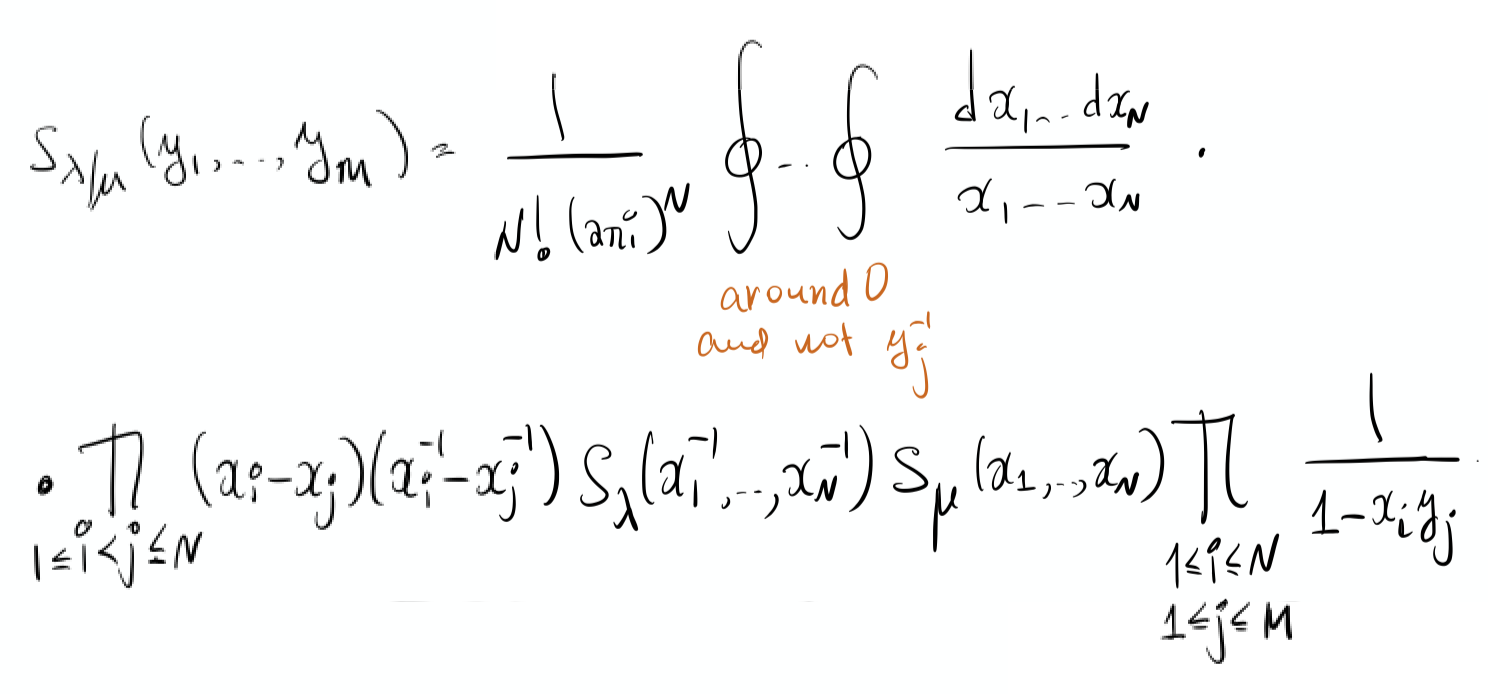 $S_{\lambda/\mu}(y_1,\ldots,y_M) = \frac{1}{N!(2\pi i)^N} \oint \cdots \oint \frac{dx_1 \ldots dx_N}{x_1 \ldots x_N} \cdot$
around 0
and not $y_j^{-1}$
$\cdot \prod_{1 \le i < j \le N} (x_i - x_j)(x_i^{-1} - x_j^{-1}) S_\lambda(x_1^{-1},\ldots,x_N^{-1}) S_\mu(x_1,\ldots,x_N) \prod_{\substack{1 \le i \le N \\ 1 \le j \le M}} \frac{1}{1 - x_i y_j}$